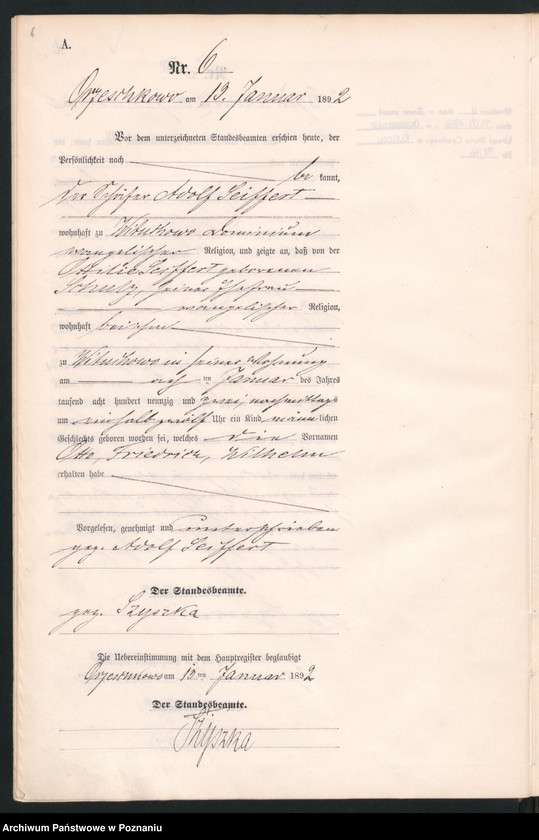 6
A.
Nr. 6
Orzeschkowo am 13. Januar 1892
Vor dem unterzeichneten Standesbeamten erschien heute, der
Persönlichkeit nach
be kannt,
der Schäfer Adolf Seiffert
wohnhaft zu Dominium
evangelischer Religion, und zeigte an, daß von der
Ottilie Seiffert geborenen
Schulz, seiner Ehefrau
evangelischer Religion,
wohnhaft bei ihm
zu in seiner Wohnung
am ten Januar des Jahres
tausend acht hundert neunzig und zwei, nachmittags
um einhalb zwölf Uhr ein Kind männlichen
Geschlechts geboren worden sei, welches die Vornamen
Otto, Friedrich, Wilhelm
erhalten habe
Vorgelesen, genehmigt und unterschrieben
gez. Adolf Seiffert
Der Standesbeamte.
gez. Szyszka
Die Uebereinstimmung mit dem Hauptregister beglaubigt
Orzeschkowo am 13 ten Januar 1892
Der Standesbeamte.
Szyszka
Archiwum Państwowe w Poznaniu